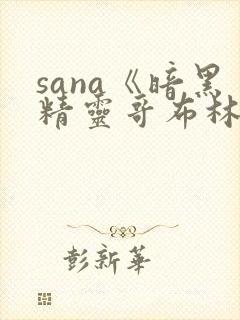 sana《暗黑
精靈哥布林
彭新華